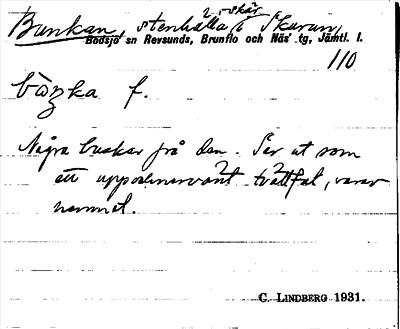 Bunkan, stenhälla i Skurun, 2-skär
Bodsjö sn Revsunds, Brunflo och Näs' tg, Jämtl. l.
110
bàŋka f.
Några buskar på den. Ser ut som
ett uppochnervänt tvättfat, varav
namnet.
C. LINDBERG 1931.